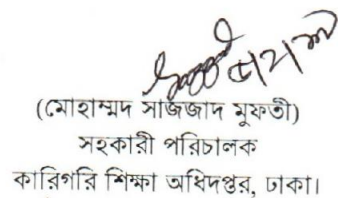 (মোহাম্মদ সাজ্জাদ মুফতী)
সহকারী পরিচালক
কারিগরি শিক্ষা অধিদপ্তর, ঢাকা।